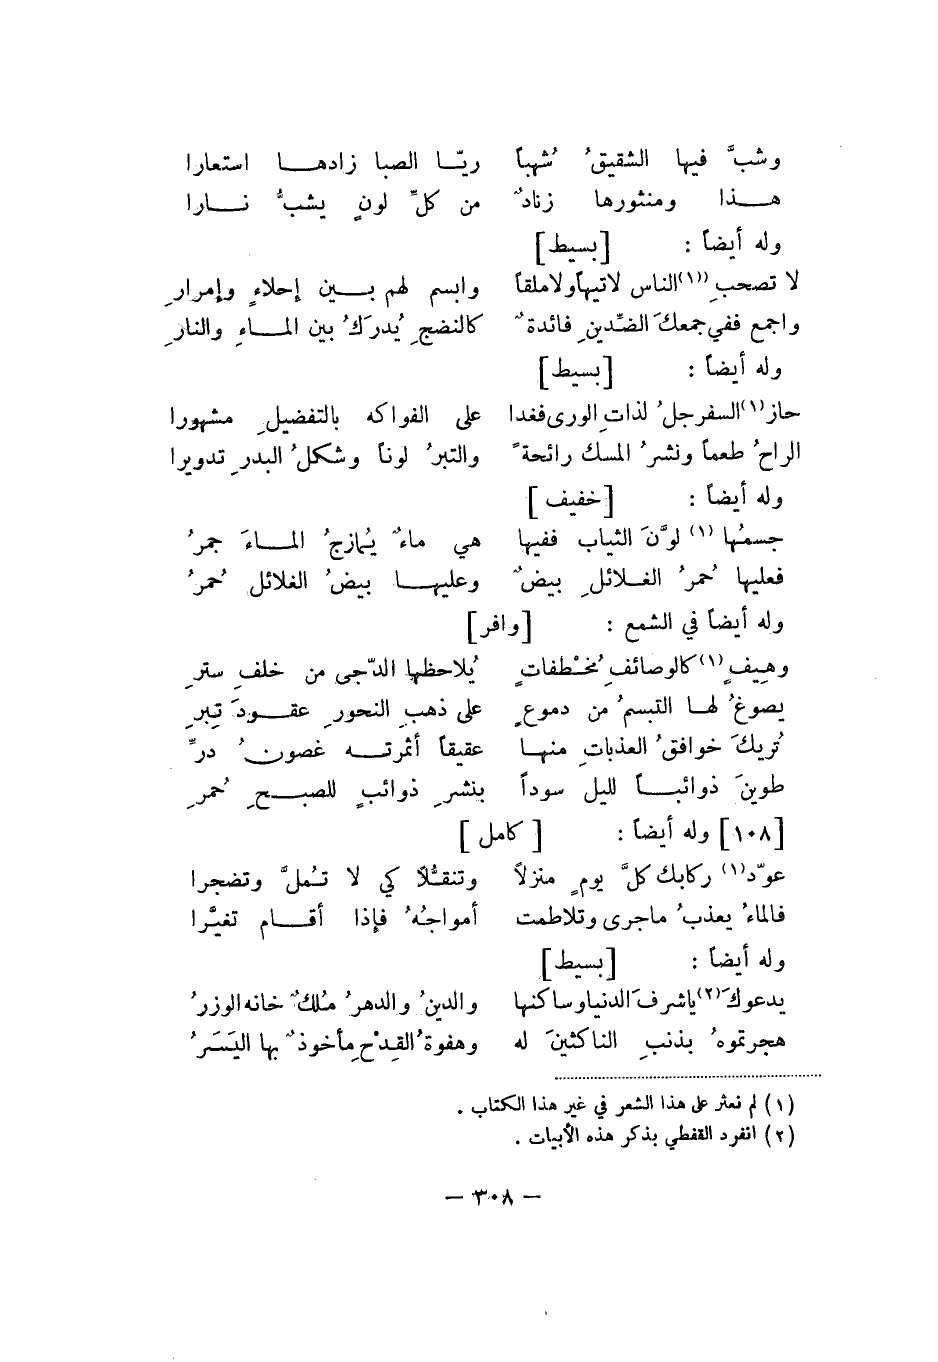 وشبَّ فيها الشقيقُ شُهباً ريّا الصبا زادها استعارا
هذا ومنثورها زنادٌ من كلِّ لونٍ يشبُّ نارا
وله أيضاً : [بسيط]
لا تصحبِ(١) الناس لا تيهاً ولا ملقاً وابسم لهم بين إحلاءٍ وإمرارِ
واجمع ففي جمعكَ الضّدينِ فائدةٌ كالنضجِ يُدرَكُ بين الماءِ والنارِ
وله أيضاً : [بسيط]
حاز(١) السفرجلُ لذاتِ الورى فغدا على الفواكه بالتفضيلِ مشهورا
الراحُ طعماً ونشرُ المسك رائحةً والتبرُ لوناً وشكلُ البدرِ تدويرا
وله أيضاً : [خفيف]
جسمُها (١) لوَّنَ الثياب ففيها هي ماءٌ يُمازجُ الماءَ جمرُ
فعليها حُمرُ الغلائلِ بيضٌ وعليها بيضُ الغلائل حُمرُ
وله أيضاً في الشمع : [وافر]
وهِيفٍ(١) كالوصائفِ مُخْطفاتٍ يُلاحظها الدّجى من خلفِ سترِ
يصوغُ لها التبسمُ من دموعٍ على ذهبِ النحورِ عقودَ تِبرِ
تُريكَ خوافقُ العذباتِ منها عقيقاً أثمرته غصونُ درِّ
طوينَ ذوائباً لليل سوداً بنشرِ ذوائبٍ للصبحِ حُمرِ
[١٠٨] وله أيضاً : [ كامل ]
عوّد(١) ركابك كلَّ يومٍ منزلاً وتنقُّلًا كي لا تُملَّ وتضجرا
فالماءُ يعذبُ ما جرى وتلاطمت أمواجُهُ فإذا أقام تغيَّرا
وله أيضاً : [بسيط]
يدعوكَ(٢) يا شرفَ الدنيا وساكنها والدينُ والدهرُ مُلكٌ خانه الوزرُ
هجرتموهُ بذنبِ الناكثينَ له وهفوةُ القِدْحِ مأخوذٌ بها اليَسَرُ
(١) لم نعثر على هذا الشعر في غير هذا الكتاب .
(٢) انفرد القفطي بذكر هذه الأبيات .
— ٣٠٨ —